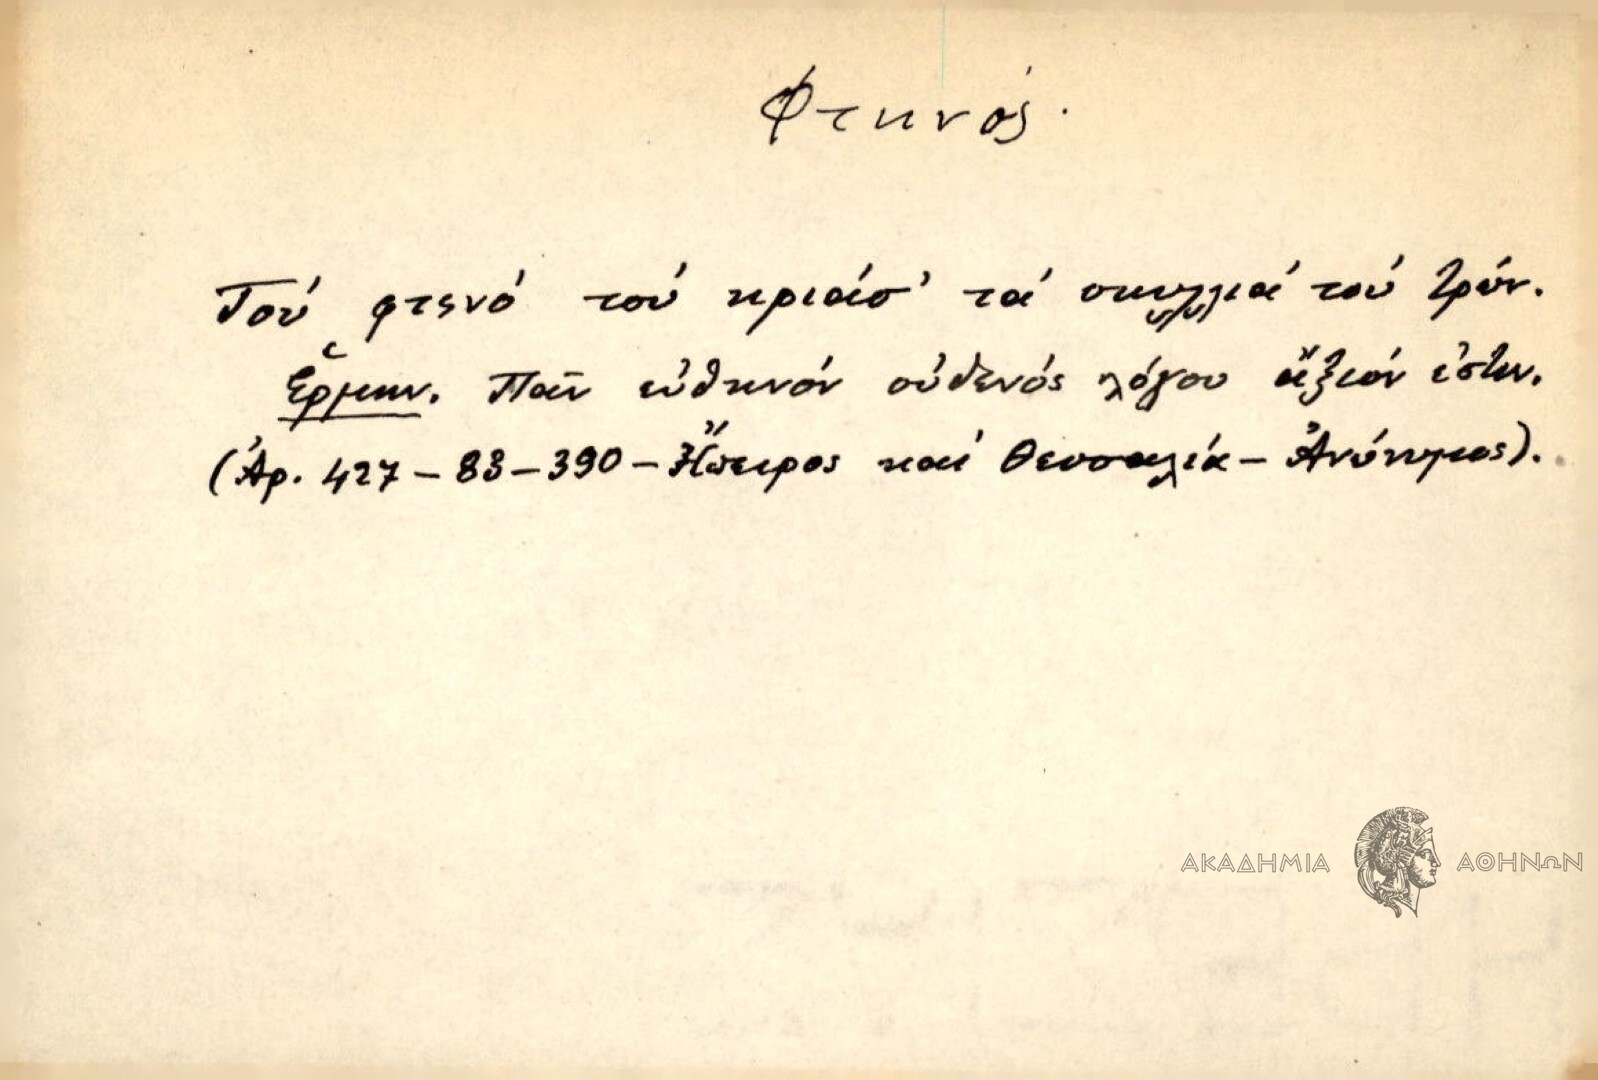 Φτηνός.
Τού φτενό τού κριάσ' τά σκυλλιά τού τρών.
Ἑρμην. Πᾶν εὐθηνόν οὐδενός λόγου ἄξιόν ἐστιν.
(Ἀρ. 427 – 83 – 390 – Ἤπειρος καί Θεσσαλία – Ἀνώνυμος).
ΑΚΑΔΗΜΙΑ ΑΘΗΝΩΝ